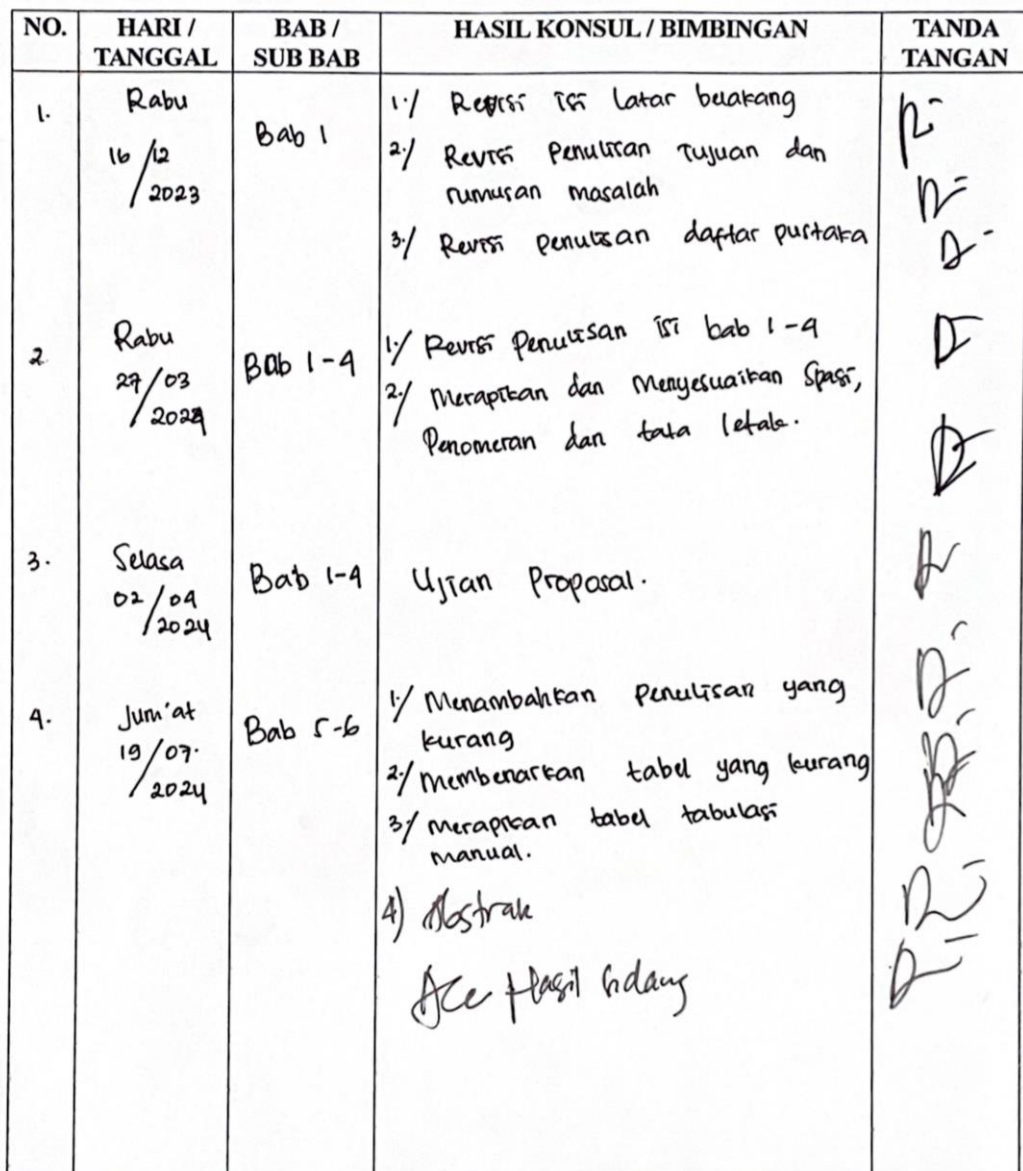 NO. HARI / TANGGAL BAB / SUB BAB HASIL KONSUL / BIMBINGAN TANDA TANGAN
1. Rabu
16/12/2023
Bab 1
1./ Revisi isi Latar belakang
2./ Revisi Penulisan Tujuan dan
rumusan masalah
3./ Revisi penulisan daftar pustaka
2. Rabu
27/03/2024
Bab 1-4
1./ Revisi Penulisan isi bab 1-4
2./ Merapikan dan Menyesuaikan Spasi,
Penomeran dan tata letak.
3. Selasa
02/04/2024
Bab 1-4
Ujian Proposal.
4. Jum'at
19/07.2024
Bab 5-6
1./ Menambahkan Penulisan yang
kurang
2./ Membenarkan tabel yang kurang
3./ Merapikan tabel tabulasi
manual.
4) Abstrak
Acc Hasil sidang